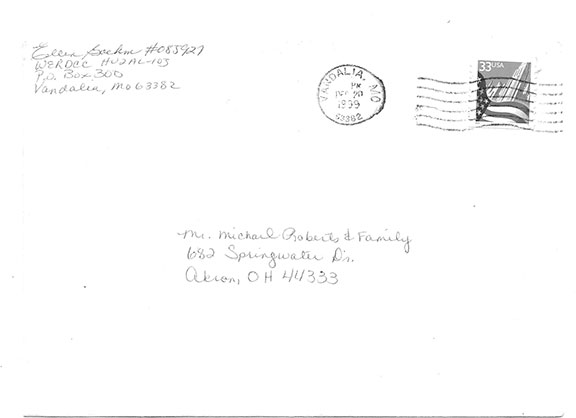 Ellen Boehm #085927
WERDCC HU2AL-103
P.O. Box 300
Vandalia, Mo 63382
VANDALIA, MO
PM
DEC 20
1999
63382
33USA
Mr. Michael Roberts & Family
682 Springwater Dr.
Akron, OH 44333